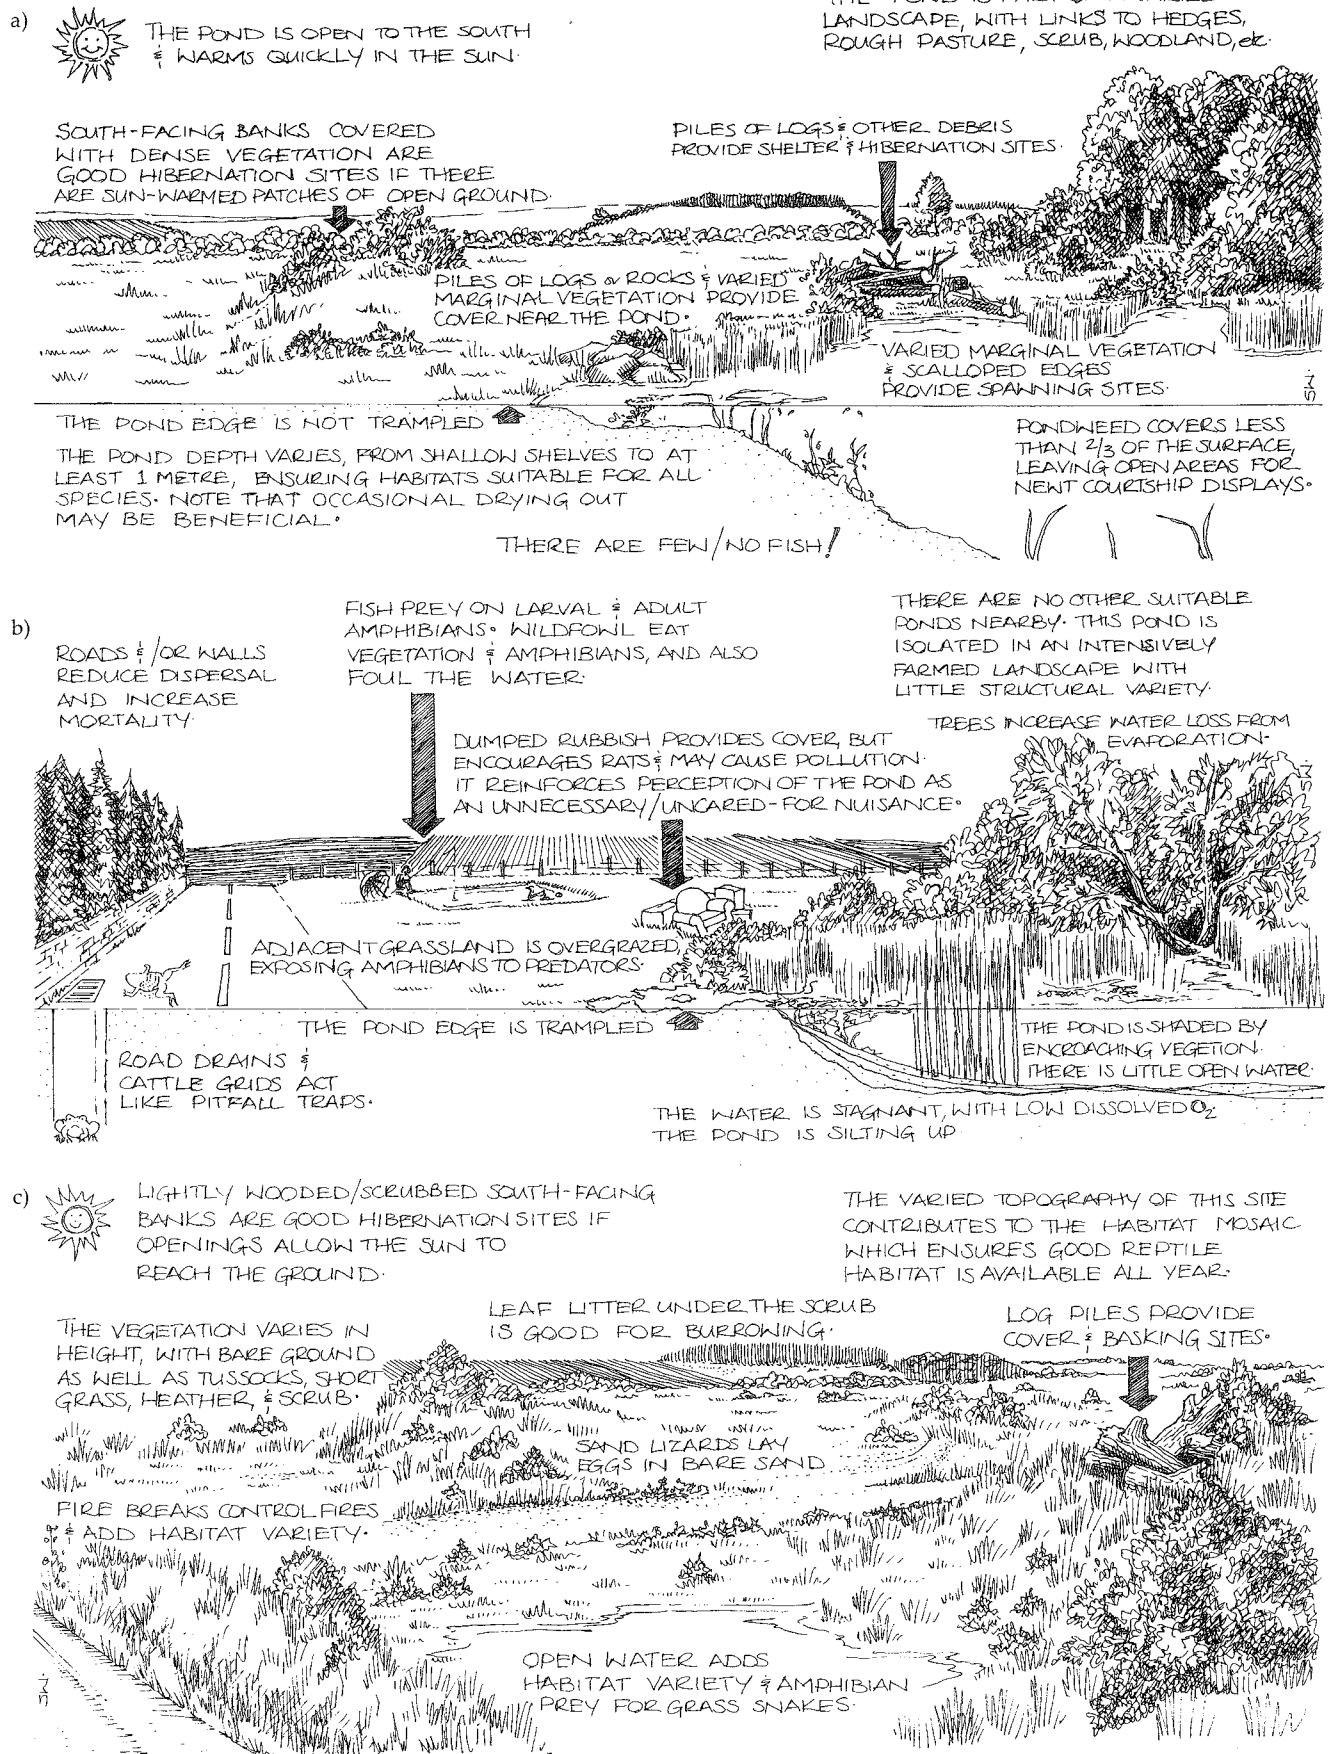 a)
THE POND IS OPEN TO THE SOUTH
& WARMS QUICKLY IN THE SUN.
LANDSCAPE, WITH LINKS TO HEDGES,
ROUGH PASTURE, SCRUB, WOODLAND, etc.
SOUTH-FACING BANKS COVERED
WITH DENSE VEGETATION ARE
GOOD HIBERNATION SITES IF THERE
ARE SUN-WARMED PATCHES OF OPEN GROUND.
PILES OF LOGS & OTHER DEBRIS
PROVIDE SHELTER & HIBERNATION SITES.
PILES OF LOGS or ROCKS & VARIED
MARGINAL VEGETATION PROVIDE
COVER NEAR THE POND.
VARIED MARGINAL VEGETATION
& SCALLOPED EDGES
PROVIDE SPAWNING SITES.
THE POND EDGE IS NOT TRAMPLED
THE POND DEPTH VARIES, FROM SHALLOW SHELVES TO AT
LEAST 1 METRE, ENSURING HABITATS SUITABLE FOR ALL
SPECIES. NOTE THAT OCCASIONAL DRYING OUT
MAY BE BENEFICIAL.
PONDWEED COVERS LESS
THAN 2/3 OF THE SURFACE,
LEAVING OPEN AREAS FOR
NEWT COURTSHIP DISPLAYS.
THERE ARE FEW/NO FISH!
b)
ROADS &/OR WALLS
REDUCE DISPERSAL
AND INCREASE
MORTALITY.
FISH PREY ON LARVAL & ADULT
AMPHIBIANS. WILDFOWL EAT
VEGETATION & AMPHIBIANS, AND ALSO
FOUL THE WATER.
THERE ARE NO OTHER SUITABLE
PONDS NEARBY. THIS POND IS
ISOLATED IN AN INTENSIVELY
FARMED LANDSCAPE WITH
LITTLE STRUCTURAL VARIETY.
TREES INCREASE WATER LOSS FROM
EVAPORATION.
DUMPED RUBBISH PROVIDES COVER, BUT
ENCOURAGES RATS & MAY CAUSE POLLUTION.
IT REINFORCES PERCEPTION OF THE POND AS
AN UNNECESSARY/UNCARED-FOR NUISANCE.
ADJACENT GRASSLAND IS OVERGRAZED,
EXPOSING AMPHIBIANS TO PREDATORS.
THE POND EDGE IS TRAMPLED
ROAD DRAINS &
CATTLE GRIDS ACT
LIKE PITFALL TRAPS.
THE POND IS SHADED BY
ENCROACHING VEGETION.
THERE IS LITTLE OPEN WATER.
THE WATER IS STAGNANT, WITH LOW DISSOLVED O2
THE POND IS SILTING UP.
c)
LIGHTLY WOODED/SCRUBBED SOUTH-FACING
BANKS ARE GOOD HIBERNATION SITES IF
OPENINGS ALLOW THE SUN TO
REACH THE GROUND.
THE VARIED TOPOGRAPHY OF THIS SITE
CONTRIBUTES TO THE HABITAT MOSAIC
WHICH ENSURES GOOD REPTILE
HABITAT IS AVAILABLE ALL YEAR.
THE VEGETATION VARIES IN
HEIGHT, WITH BARE GROUND
AS WELL AS TUSSOCKS, SHORT
GRASS, HEATHER, & SCRUB.
LEAF LITTER UNDER THE SCRUB
IS GOOD FOR BURROWING.
LOG PILES PROVIDE
COVER & BASKING SITES.
SAND LIZARDS LAY
EGGS IN BARE SAND
FIRE BREAKS CONTROL FIRES
& ADD HABITAT VARIETY.
OPEN WATER ADDS
HABITAT VARIETY & AMPHIBIAN
PREY FOR GRASS SNAKES.